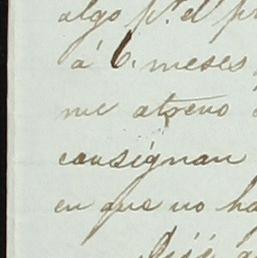 algo pr. el pr
á 6. meses
me atrevo
consignan
en que no ha
Dije